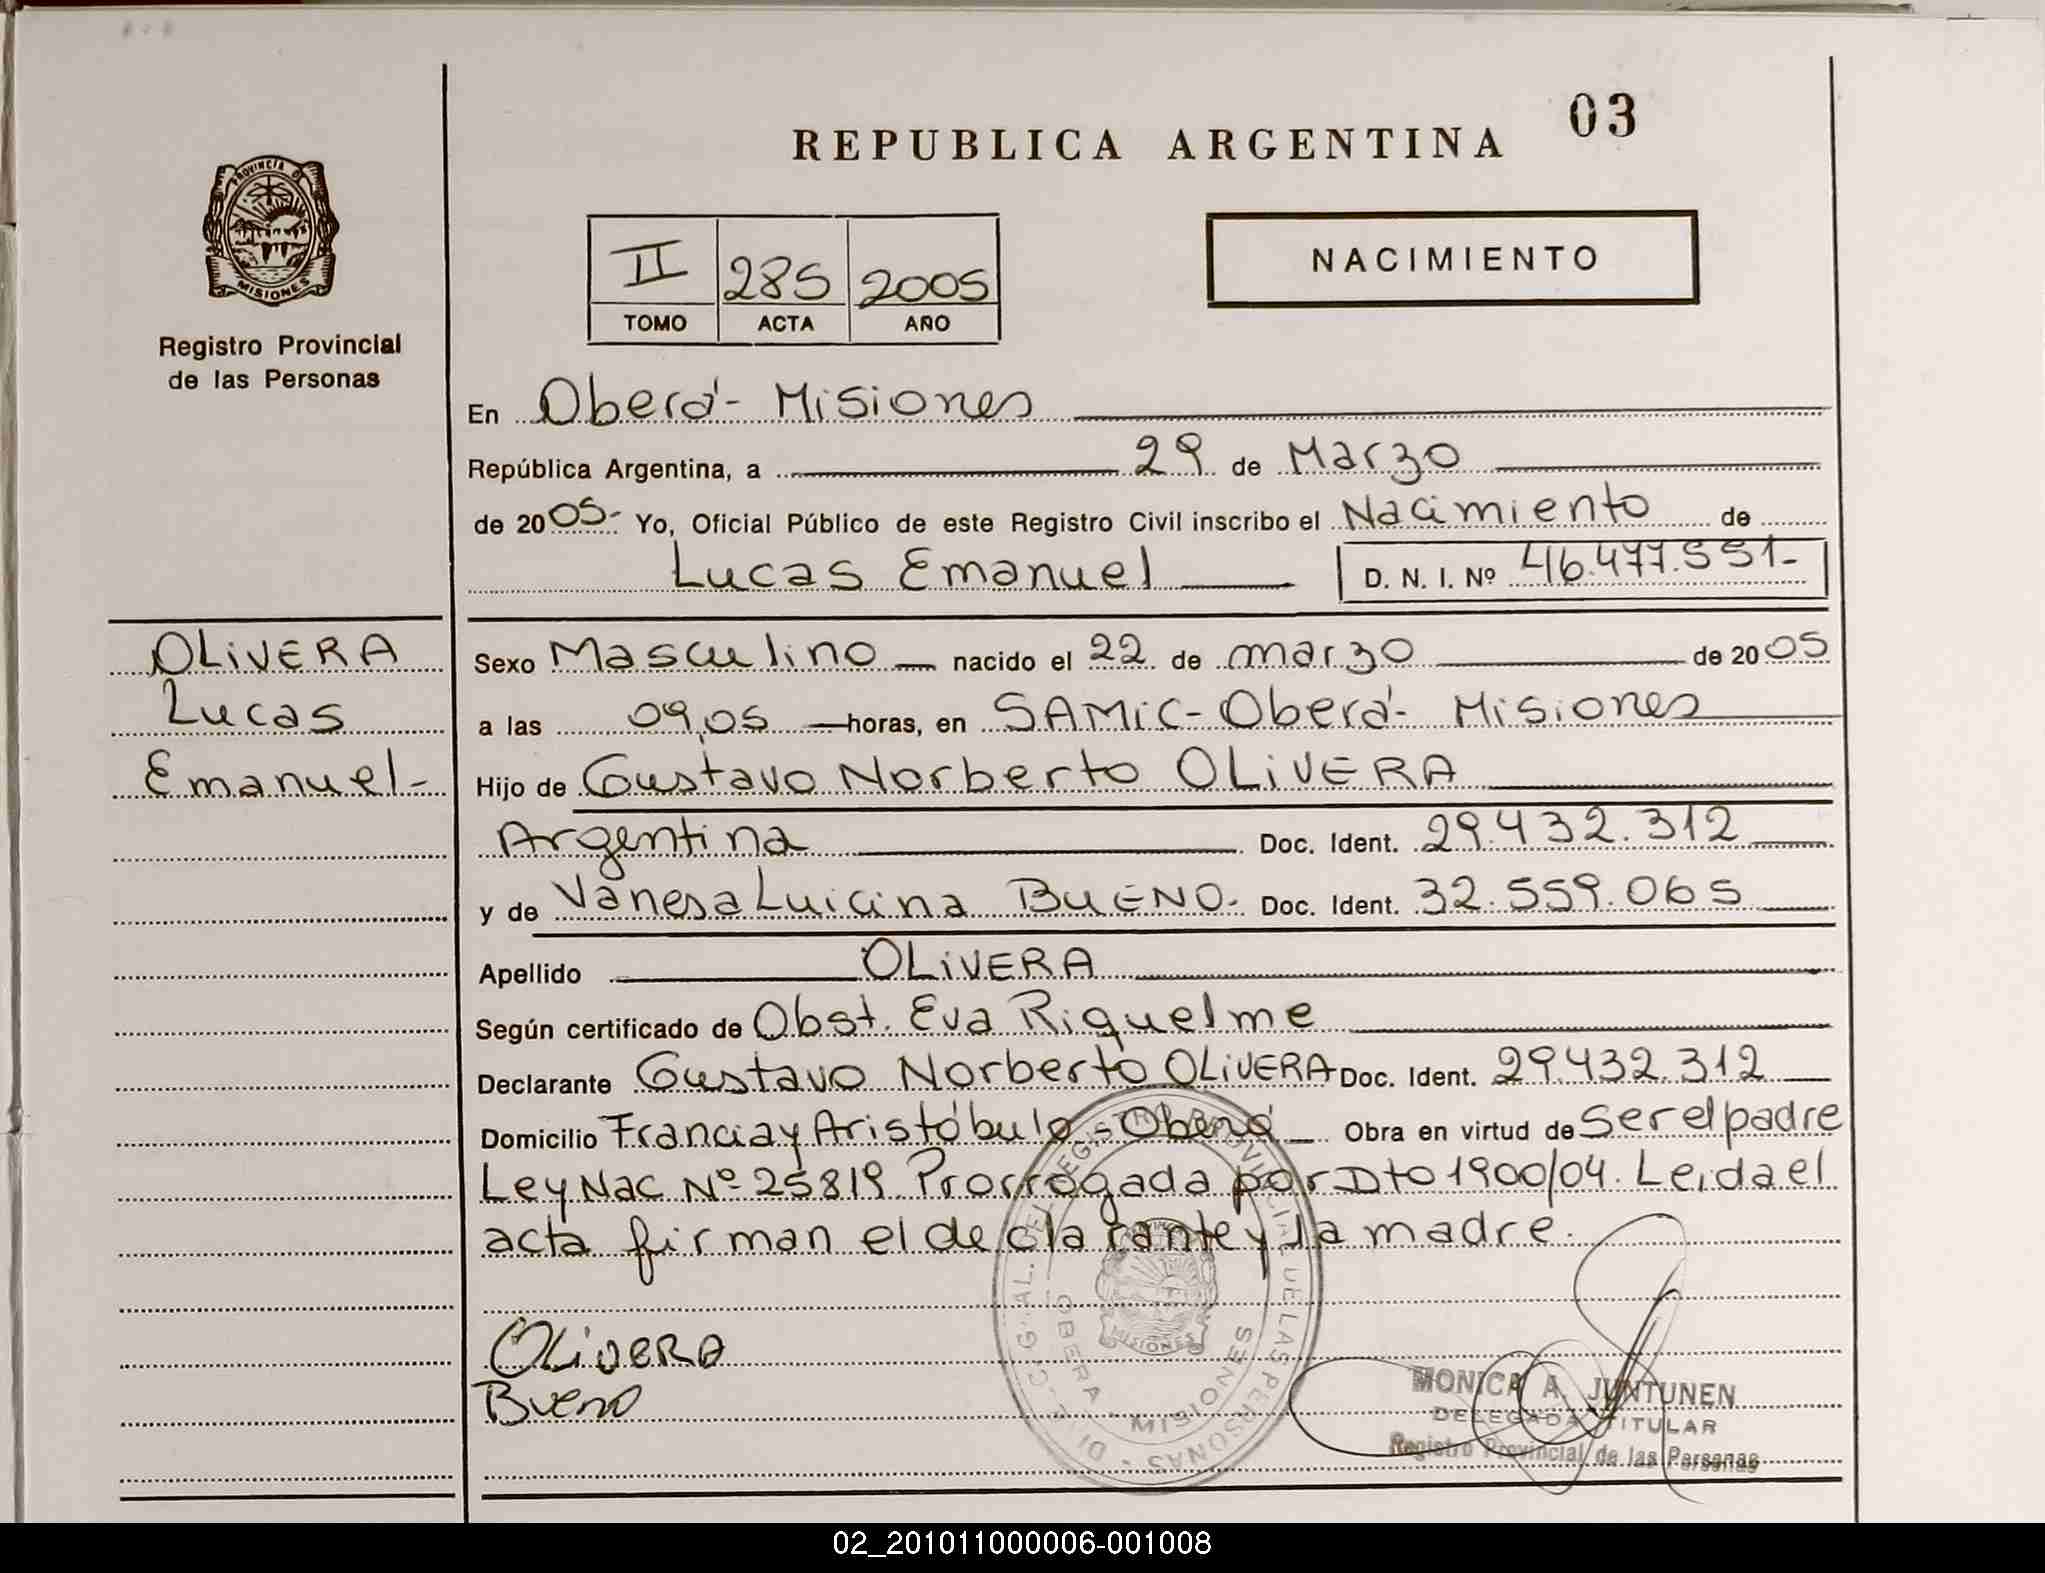 03
REPUBLICA ARGENTINA
PROVINCIA DE
MISIONES
Registro Provincial
de las Personas
II 285 2005
TOMO ACTA AÑO
NACIMIENTO
En Oberá- Misiones
República Argentina, a 29 de Marzo
de 2005- Yo, Oficial Público de este Registro Civil inscribo el Nacimiento de
Lucas Emanuel D. N. I. Nº 46.477.551-
OLIVERA
Lucas
Emanuel-
Sexo Masculino nacido el 22 de marzo de 2005
a las 09,05 horas, en SAMIC- Oberá- Misiones
Hijo de Gustavo Norberto OLIVERA
Argentina Doc. Ident. 29.432.312
y de Vanesa Luicina BUENO- Doc. Ident. 32.559.065
Apellido OLIVERA
Según certificado de Obst. Eva Riquelme
Declarante Gustavo Norberto OLIVERA Doc. Ident. 29.432.312
Domicilio Francia y Aristóbulo - Oberá Obra en virtud de Ser el padre
Ley Nac Nº 25819 Prorrogada por Dto 1900/04. Leida el
acta firman el declarante y la madre.
OLIVERA
Bueno
OBERA - MISIONES
MISIONES
MONICA A. JUNTUNEN
DELEGADA TITULAR
Registro Provincial de las Personas
02_201011000006-001008